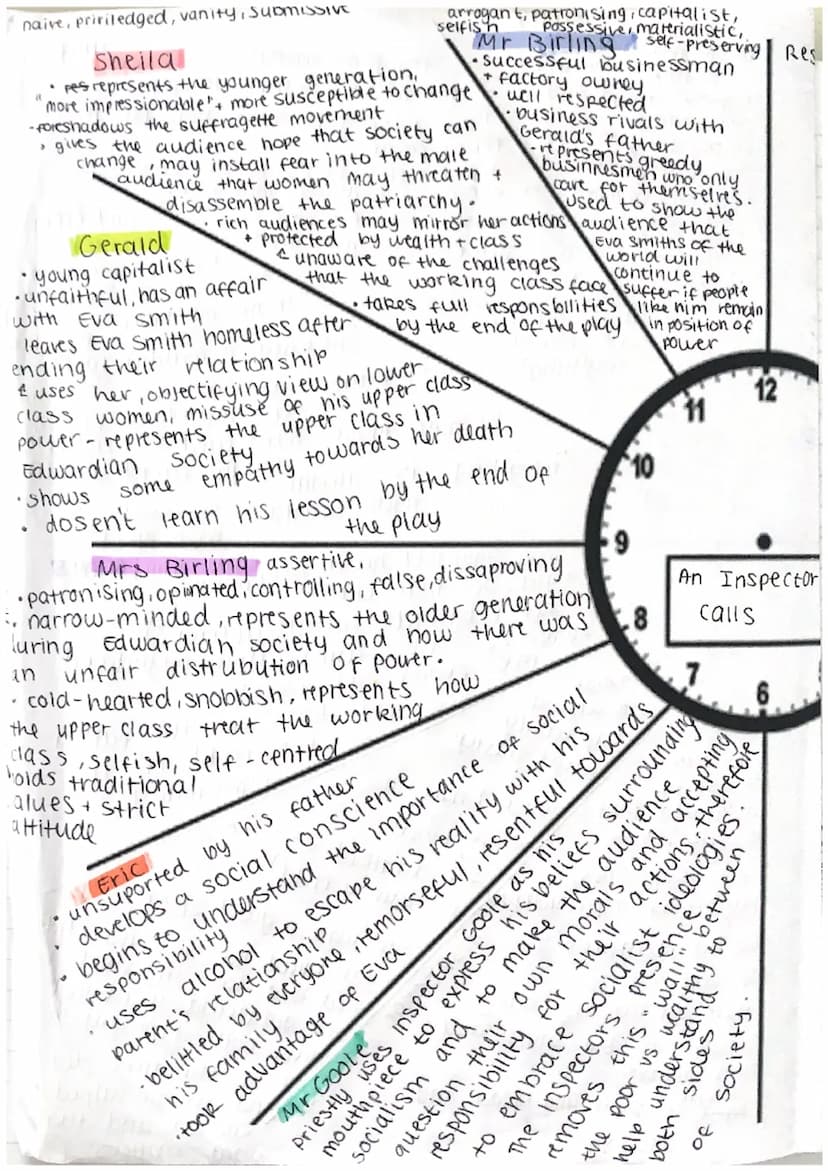 naive, pririledged, vanity, submissive
Sheila
• represents the younger generation,
"more impressionable" + more susceptible to change
-foreshadows the suffragette movement
• gives the audience hope that society can
change, may install fear into the male
audience that women may threaten +
disassemble the patriarchy.
• rich audiences may mirror her actions
+ protected by wealth + class
& unaware of the challenges
that the working class face
• takes full responsbilities
by the end of the play
arrogant, patronising, capitalist,
selfish possessive, materialistic,
Mr Birling self-preserving
• successful businessman
+ factory owner
• well respected
• business rivals with
Gerald's father
- represents greedy
businnesmen who only
care for themselves.
used to show the
audience that
Eva Smiths of the
world will
continue to
suffer if people
like him remain
in position of
power
Res
Gerald
• young capitalist
• unfaithful, has an affair
with Eva Smith
leaves Eva Smith homeless after
ending their relationship
& uses her, objectifying view on lower
class women, missuse of his upper class
power - represents the upper class in
Edwardian society
• shows some empathy towards her death
• dosen't learn his lesson by the end of
the play
Mrs Birling assertive,
• patronising, opinated, controlling, false, dissaproving
narrow-minded, represents the older generation
during Edwardian society and how there was
an unfair distrubution of power.
• cold-hearted, snobbish, represents how
the upper class treat the working
class, selfish, self-centred
holds traditional
values + strict
attitude
Eric
• unsuported by his father
• develops a social conscience
• begins to understand the importance of social
responsibility
• uses alcohol to escape his reality with his
parent's relationship
• belittled by everyone, remorseful, resentful towards
his family
• took advantage of Eva
Mr Goole
Priestly uses Inspector Goole as his
mouthpiece to express his beliefs surrounding
socialism and to make the audience
question their own morals and accepting
responsibility for their actions, therefore
to embrace socialist ideologies.
The inspectors presence
removes this "wall" between
the poor vs wealthy to
help understand
both sides
of society.
12
11
10
9
8
7
6
An Inspector
calls